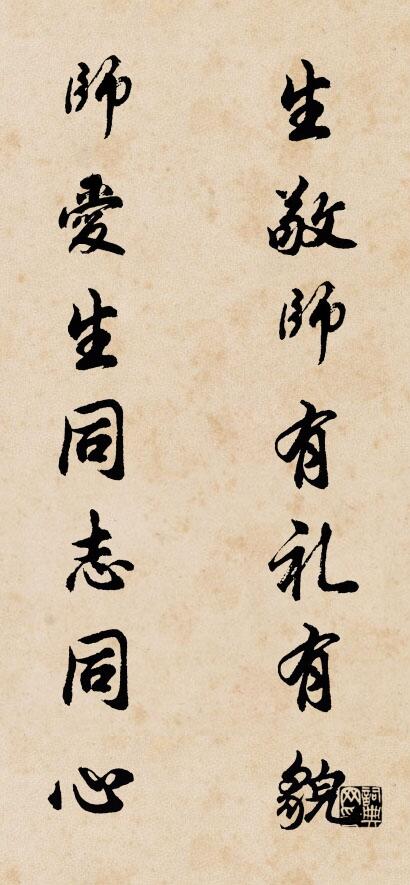 生敬師有礼有貌
師愛生同志同心
詞典網